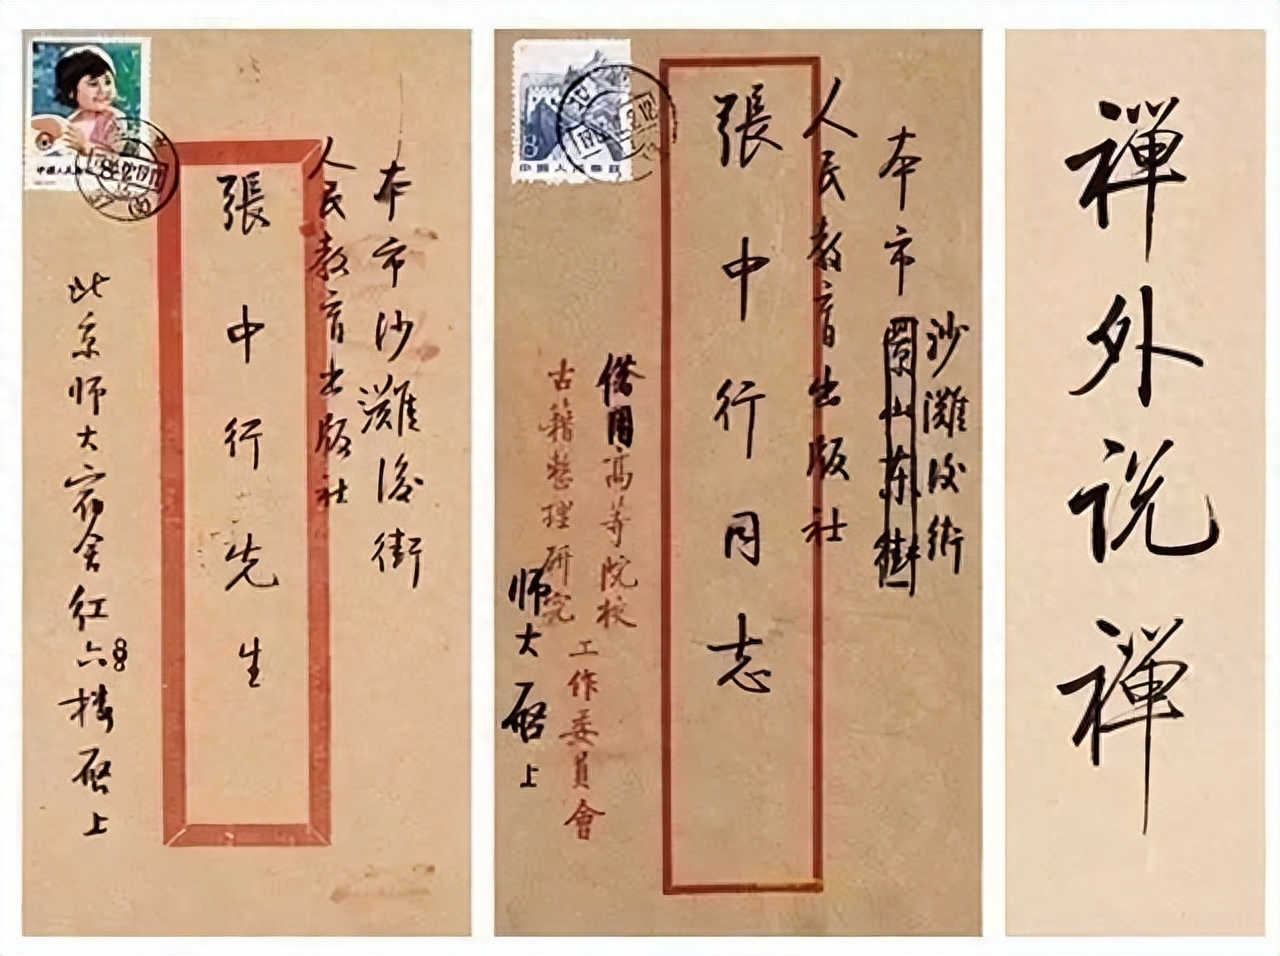 本市沙灘後街
人民教育出版社
張中行先生
北京师大宿舍红六楼启上
沙灘後街
本市景山东街
人民教育出版社
張中行同志
借用高等院校
古籍整理研究
工作委員會
师大启上
8
禅外说禅